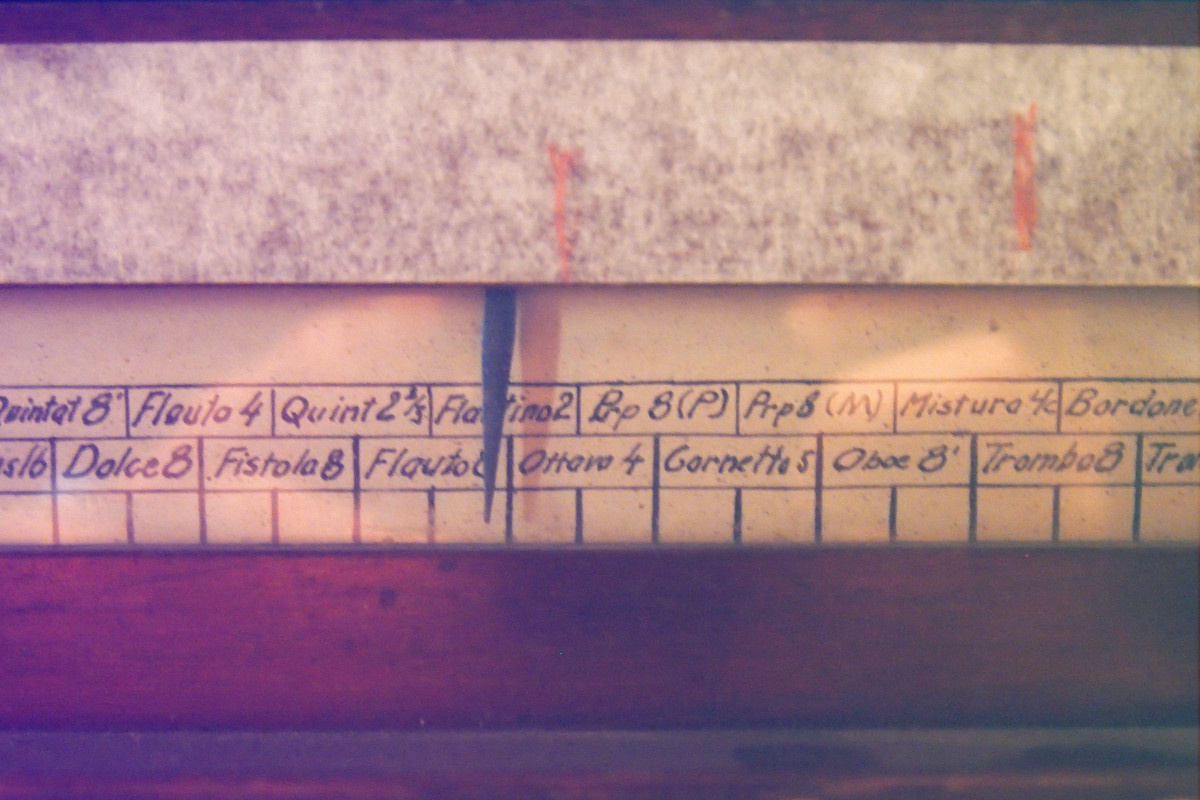 Quintat 8' Flauto 4 Quint 2⅔ Flautino 2 Prp 8 (P) Prp 8 (M) Mistura 4c Bordone
Dolce 8 Fistola 8 Flauto 8 Ottava 4 Cornetto 5 Oboe 8' Tromba 8